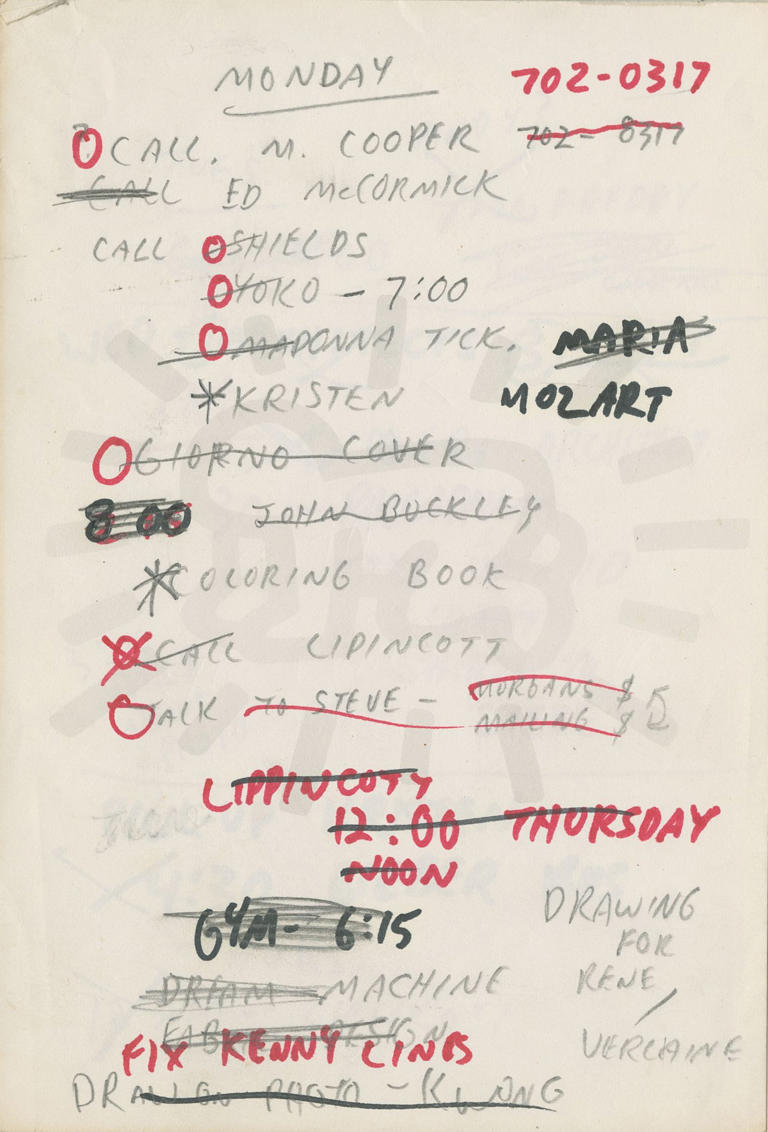 MONDAY 702-0317
CALL. M. COOPER 702-8317
CALL ED McCORMICK
CALL SHIELDS
YOKO - 7:00
MADONNA TICK. MARIA
*KRISTEN MOZART
GIORNO COVER
8:00 JOHN BUCKLEY
*COLORING BOOK
CALL LIPINCOTT
TALK TO STEVE - MORGANS $
MAILING $
LIPPINCOTT
12:00 THURSDAY
NOON
GYM- 6:15
DRAWING
FOR
RENE /
VERLAINE
DREAM MACHINE
DESIGN
FIX KENNY LINES
DRAW ON PHOTO - KWONG